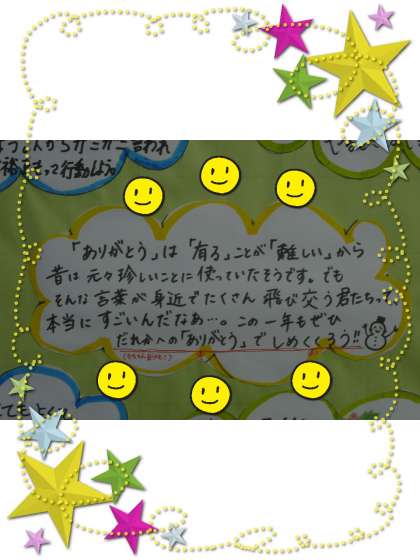 「ありがとう」は「有る」ことが「難しい」から
昔は元々珍しいことに使っていたそうです。でも
そんな言葉が身近でたくさん飛び交う君たちって、
本当にすごいんだなあ…。この一年もぜひ
だれかへの「ありがとう」でしめくくろう!!